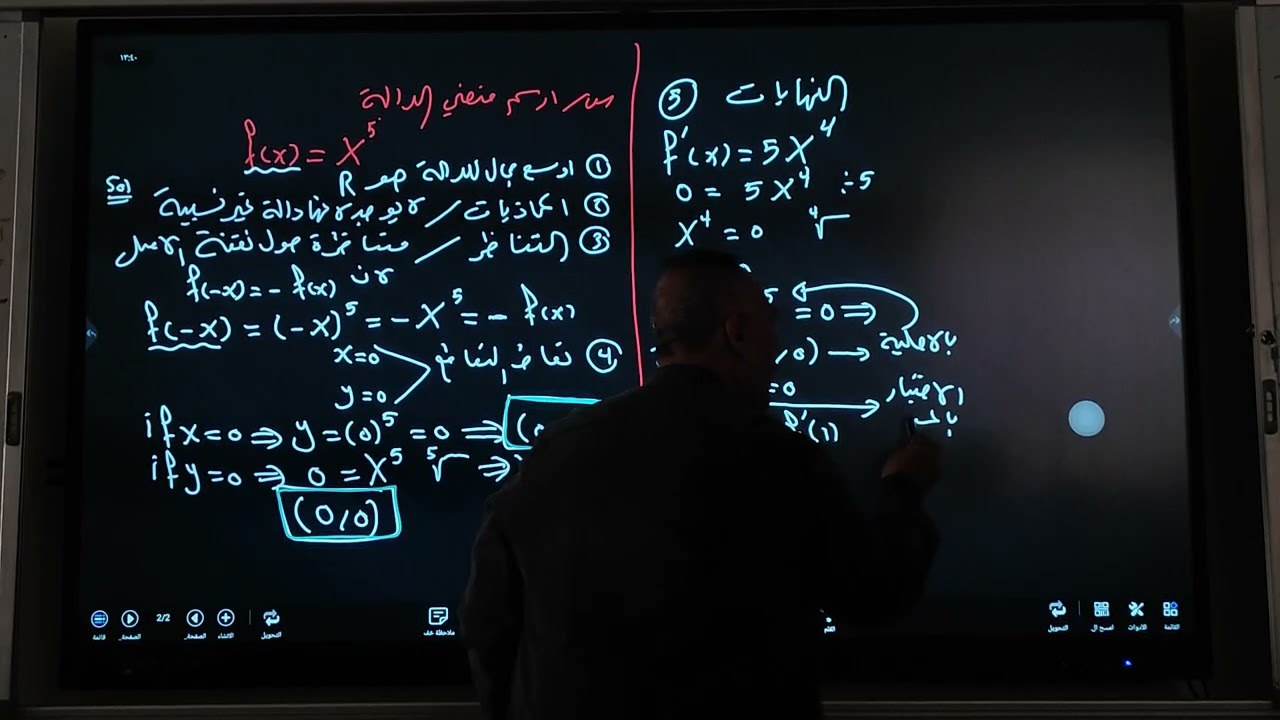 ١٢:٤٠
ارسم منحني الدالة
f(x) = X⁵
Sol
① اوسع مجال للدالة هو R
② المحاذيات / لا يوجد لانها دالة غير نسبية
③ التناظر / متناظرة حول نقطة الاصل
لان f(-x) = - f(x)
f(-x) = (-x)⁵ = -X⁵ = - f(x)
④ نقاط التقاطع
x=0
y=0
if x=0 ⇒ y=(0)⁵ = 0 ⇒ (
if y=0 ⇒ 0 = X⁵ ⁵√ ⇒
(0,0)
⑤ النهايات
f'(x) = 5X⁴
0 = 5X⁴ ÷5
X⁴ = 0 ⁴√
= 0 ⇒
,0) → بالاصلية
=0
الاختبار
f'(1)
قائمة
الصفحة
2/2
الصفحة
التحويل
التحويل
الأدوات
القائمة